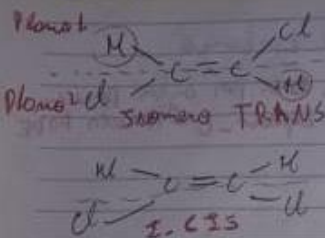 Plano 1
H Cl
C = C
Plano 2 Cl H
Isomero TRANS
H H
C = C
Cl Cl
I. CIS